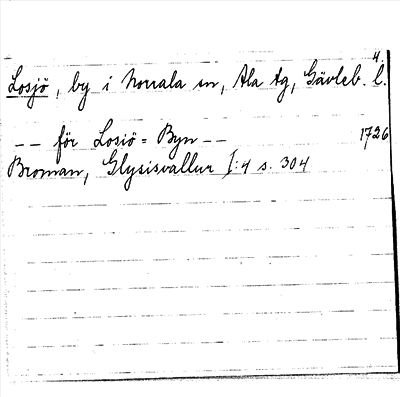 4.
Losjö, by i Norrala sn, Ala tg, Gävleb. l.
-- för Losiö = Byn -- 1726
Broman, Glysisvallur I:4 s. 304